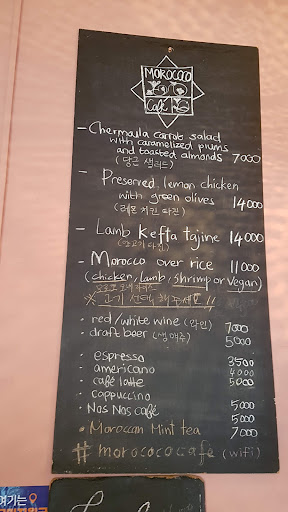 MOROCOCO
Café
- Chermoula carrots salad
with caramelized plums
and toasted almonds 7000
(당근 샐러드)
- Preserved lemon chicken
with green olives 14000
(레몬 치킨 타진)
- Lamb Kefta tajine 14000
(양고기 타진)
- Morocco over rice 11000
(chicken, Lamb, shrimp or Vegan)
모로코 오버 라이스
※ 고기 선택 해주세요!!
• red/white wine (와인) 7000
• draft beer (생맥주) 5000
• espresso 3500
• americano 4000
• café latte 5000
• cappuccino
• Nos Nos café 5000
5000
• Moroccan Mint tea 7000
# morococo cafe (wifi)
여기는